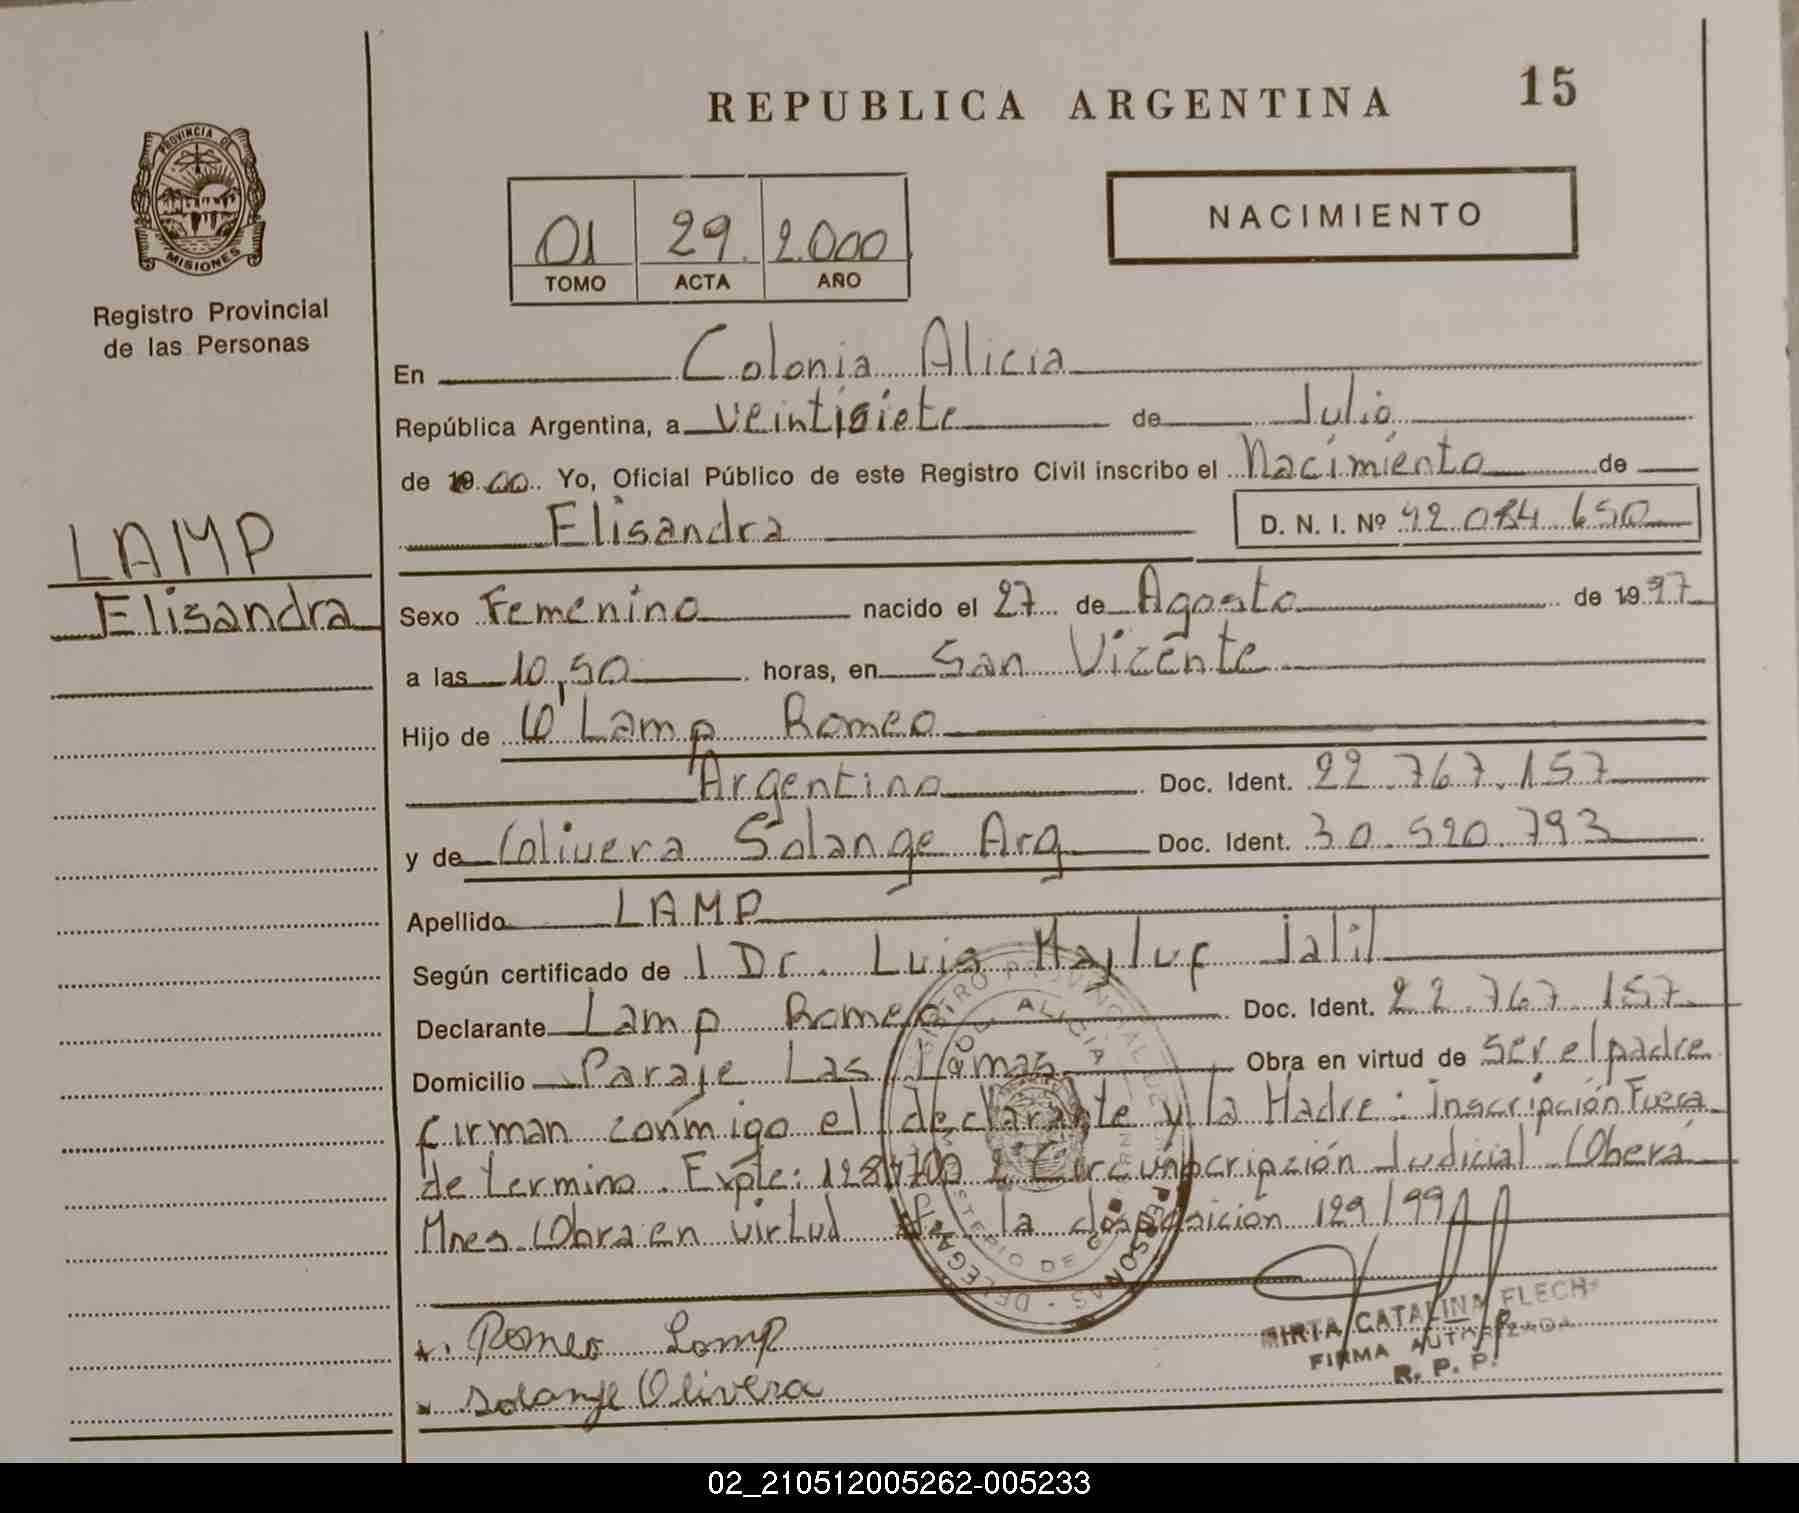 REPUBLICA ARGENTINA 15
PROVINCIA DE MISIONES
Registro Provincial
de las Personas
01 29 2.000
TOMO ACTA AÑO
NACIMIENTO
En Colonia Alicia
República Argentina, a veintisiete de Julio
de 00 Yo, Oficial Público de este Registro Civil inscribo el Nacimiento de
Elisandra D. N. I. Nº 42.084.650
LAMP
Elisandra
Sexo Femenino nacido el 27 de Agosto de 1997
a las 10,50 horas, en San Vicente
Hijo de Lamp Romeo
Argentino Doc. Ident. 22.767.157
y de Olivera Solange Arg Doc. Ident. 30.520.793
Apellido LAMP
Según certificado de Dr. Luis Mayluf Jalil
Declarante Lamp Romeo Doc. Ident. 22.767.157
Domicilio Paraje Las Lomas Obra en virtud de ser el padre
firman conmigo el declarante y la Madre: Inscripción Fuera
de termino. Expte: 2ª Circunscripción Judicial Oberá
Mnes Obra en virtud de la disposicion 129/99
Romeo Lamp
Solanje Olivera
MIRTA CATALINA FLECH
FIRMA AUTORIZADA
R. P. P.
02_210512005262-005233